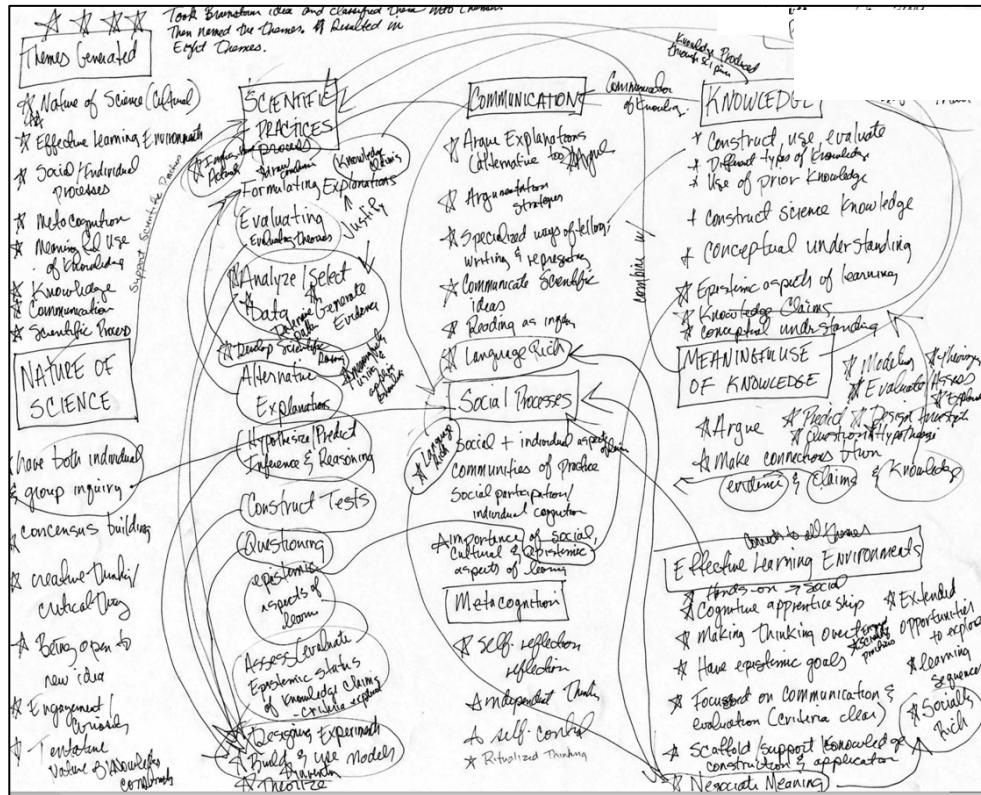 Took Brainstorm idea and classified them into themes.
Then named the themes. Resulted in
Eight Themes.
Themes Generated
Nature of Science (Cultural
Effective Learning Environments
Social/Individual
processes
Metacognition
Meaningful Use
of Knowledge
Knowledge
Communication
Scientific Process
Support Scientific Practices
NATURE OF
SCIENCE
have both individual
& group inquiry
concensus building
creative thinking/
critical
Being open to
new idea
Engagement/
Tentative
nature of knowledge
SCIENTIFIC
PRACTICES
process
draw
Knowledge
Claims
Formulating Explanations
Justify
Evaluating
Evaluating theories
Analyze/Select
Data
Determine
Data
Generate
Evidence
Develop Scientific
Alternative
Explanation
Hypothesize/Predict
Inference & Reasoning
Construct Tests
Questioning
epistemic
aspects of
learn
Assess/evaluate
Epistemic status
of Knowledge Claims
- criteria
Designing Experiment
Build & use models
Theorize
COMMUNICATION
Communication
of Knowledge
Argue Explanations
(alternative too) Argue
Argumentation
strategies
Specialized ways of talking
writing & representing
Communicate Scientific
ideas
Reading as inquiry
Language Rich
Social Processes
Language
Rich
Social + individual aspects
communities of Practice
Social participation/
individual cognition
importance of social,
cultural & epistemic
aspects of learning
Metacognition
Self-reflection
reflection
independent Thinking
self-control
Ritualized Thinking
Knowledge Produced
through
KNOWLEDGE
construct use evaluate
Different types of Knowledge
Use of prior Knowledge
construct science Knowledge
conceptual understanding
Epistemic aspects of learning
Knowledge Claims
conceptual understanding
combine w/
MEANINGFUL USE
OF KNOWLEDGE
Modeling
Evaluate
Assess
Explain
Argue
Predict
Design
Question
Hypothesize
Make connections btwn
evidence & Claims & Knowledge
Connects to all themes
Effective Learning Environments
Hands-on → Social
Cognitive apprenticeship
Making Thinking overt
Extended
opportunities
to explore
Have epistemic goals
learning
sequence
Focused on communication &
evaluation (criteria clear)
Socially
Rich
Scaffold/support Knowledge
construction & application
Negotiate Meaning